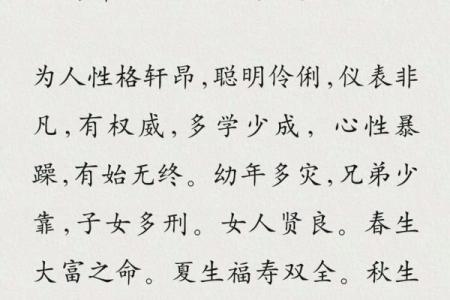 为人性格轩昂,聪明伶俐,仪表非
凡,有权威,多学少成, 心性暴
躁,有始无终。幼年多灾,兄弟少
靠,子女多刑。女人贤良。春生
大富之命。夏生福寿双全。秋生